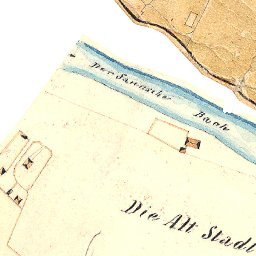 Der Saensche Bach
Die Alt Stadt